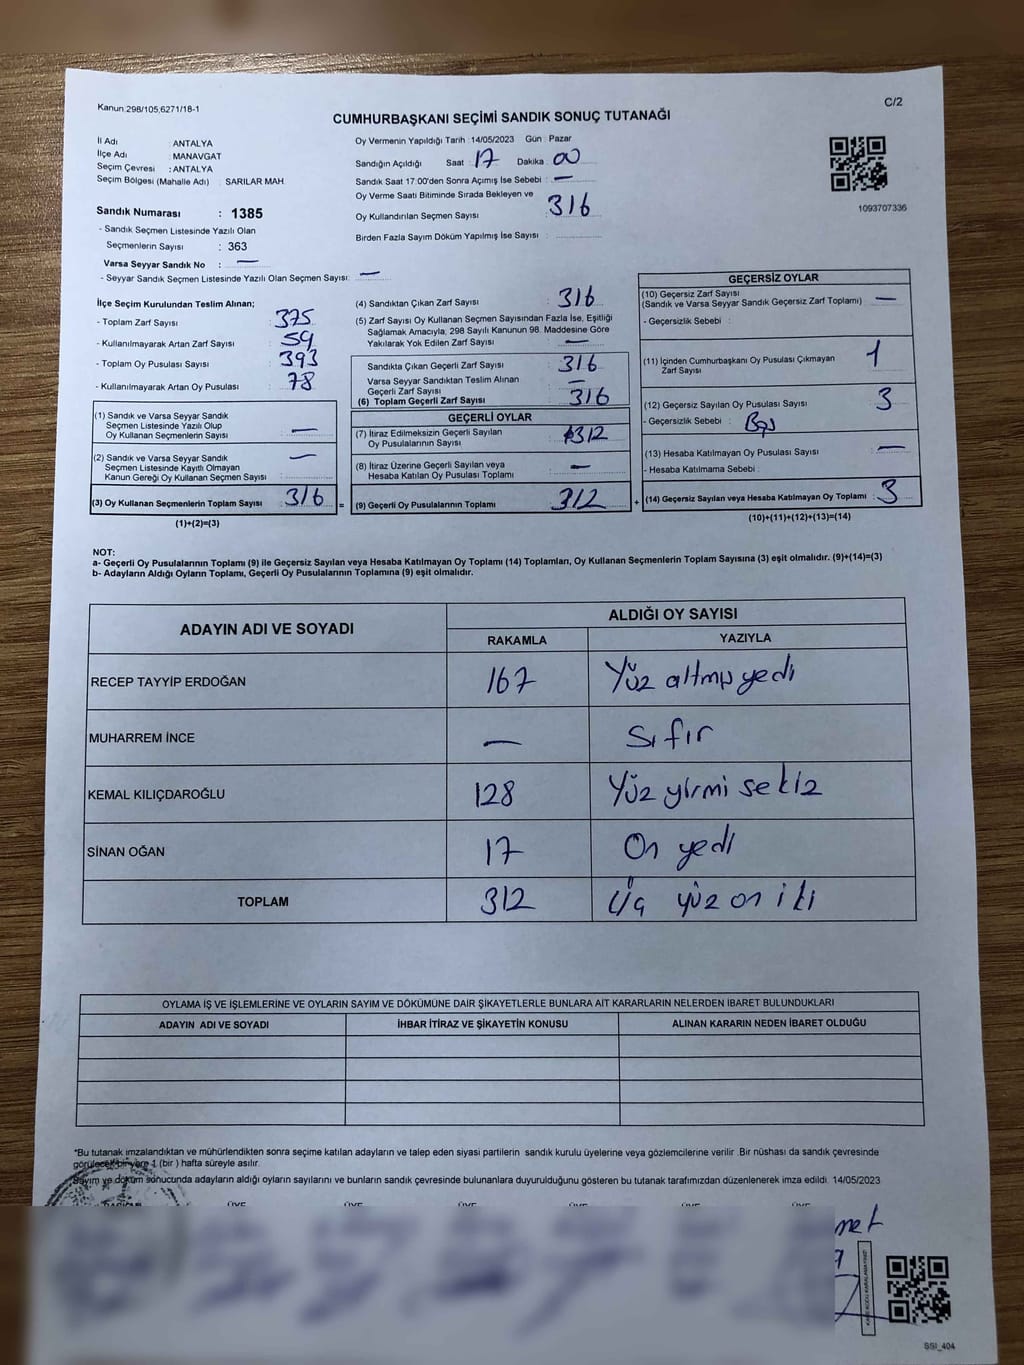 Kanun 298/105,6271/18-1
C/2
CUMHURBAŞKANI SEÇİMİ SANDIK SONUÇ TUTANAĞI
İl Adı : ANTALYA
İlçe Adı : MANAVGAT
Seçim Çevresi : ANTALYA
Seçim Bölgesi (Mahalle Adı) : SARILAR MAH
Sandık Numarası : 1385
- Sandık Seçmen Listesinde Yazılı Olan
Seçmenlerin Sayısı : 363
Varsa Seyyar Sandık No : —
- Seyyar Sandık Seçmen Listesinde Yazılı Olan Seçmen Sayısı: —
Oy Vermenin Yapıldığı Tarih :14/05/2023 Gün : Pazar
Sandığın Açıldığı Saat 17 Dakika 00
Sandık Saat 17:00'den Sonra Açımış İse Sebebi : —
Oy Verme Saati Bitiminde Sırada Bekleyen ve
Oy Kullandırılan Seçmen Sayısı : 316
Birden Fazla Sayım Döküm Yapılmış İse Sayısı :
1093707336
İlçe Seçim Kurulundan Teslim Alınan;
- Toplam Zarf Sayısı : 375
- Kullanılmayarak Artan Zarf Sayısı : 59
- Toplam Oy Pusulası Sayısı : 393
- Kullanılmayarak Artan Oy Pusulası : 78
(1) Sandık ve Varsa Seyyar Sandık
Seçmen Listesinde Yazılı Olup
Oy Kullanan Seçmenlerin Sayısı : —
(2) Sandık ve Varsa Seyyar Sandık
Seçmen Listesinde Kayıtlı Olmayan
Kanun Gereği Oy Kullanan Seçmen Sayısı : —
(3) Oy Kullanan Seçmenlerin Toplam Sayısı : 316
(1)+(2)=(3)
=
(4) Sandıktan Çıkan Zarf Sayısı : 316
(5) Zarf Sayısı Oy Kullanan Seçmen Sayısından Fazla İse, Eşitliği
Sağlamak Amacıyla, 298 Sayılı Kanunun 98. Maddesine Göre
Yakılarak Yok Edilen Zarf Sayısı : —
Sandıkta Çıkan Geçerli Zarf Sayısı : 316
Varsa Seyyar Sandıktan Teslim Alınan
Geçerli Zarf Sayısı : —
(6) Toplam Geçerli Zarf Sayısı : 316
GEÇERLİ OYLAR
(7) İtiraz Edilmeksizin Geçerli Sayılan
Oy Pusulalarının Sayısı : 312
(8) İtiraz Üzerine Geçerli Sayılan veya
Hesaba Katılan Oy Pusulası Toplamı : —
(9) Geçerli Oy Pusulalarının Toplamı : 312
+
GEÇERSİZ OYLAR
(10) Geçersiz Zarf Sayısı
(Sandık ve Varsa Seyyar Sandık Geçersiz Zarf Toplamı) : —
- Geçersizlik Sebebi :
(11) İçinden Cumhurbaşkanı Oy Pusulası Çıkmayan
Zarf Sayısı : 1
(12) Geçersiz Sayılan Oy Pusulası Sayısı : 3
- Geçersizlik Sebebi : Boş
(13) Hesaba Katılmayan Oy Pusulası Sayısı : —
- Hesaba Katılmama Sebebi :
(14) Geçersiz Sayılan veya Hesaba Katılmayan Oy Toplamı : 3
(10)+(11)+(12)+(13)=(14)
NOT:
a- Geçerli Oy Pusulalarının Toplamı (9) ile Geçersiz Sayılan veya Hesaba Katılmayan Oy Toplamı (14) Toplamları, Oy Kullanan Seçmenlerin Toplam Sayısına (3) eşit olmalıdır. (9)+(14)=(3)
b- Adayların Aldığı Oyların Toplamı, Geçerli Oy Pusulalarının Toplamına (9) eşit olmalıdır.
ADAYIN ADI VE SOYADI
ALDIĞI OY SAYISI
RAKAMLA YAZIYLA
RECEP TAYYİP ERDOĞAN 167 Yüz altmış yedi
MUHARREM İNCE — Sıfır
KEMAL KILIÇDAROĞLU 128 Yüz yirmi sekiz
SİNAN OĞAN 17 On yedi
TOPLAM 312 Üç yüz on iki
OYLAMA İŞ VE İŞLEMLERİNE VE OYLARIN SAYIM VE DÖKÜMÜNE DAİR ŞİKAYETLERLE BUNLARA AİT KARARLARIN NELERDEN İBARET BULUNDUKLARI
ADAYIN ADI VE SOYADI İHBAR İTİRAZ VE ŞİKAYETİN KONUSU ALINAN KARARIN NEDEN İBARET OLDUĞU
*Bu tutanak imzalandıktan ve mühürlendikten sonra seçime katılan adayların ve talep eden siyasi partilerin sandık kurulu üyelerine veya gözlemcilerine verilir .Bir nüshası da sandık çevresinde
görülecek bir yere 1 (bir ) hafta süreyle asılır.
Sayım ve döküm sonucunda adayların aldığı oyların sayılarını ve bunların sandık çevresinde bulunanlara duyurulduğunu gösteren bu tutanak tarafımızdan düzenlenerek imza edildi. 14/05/2023
ÜYE ÜYE ÜYE ÜYE ÜYE ÜYE
SSI_404